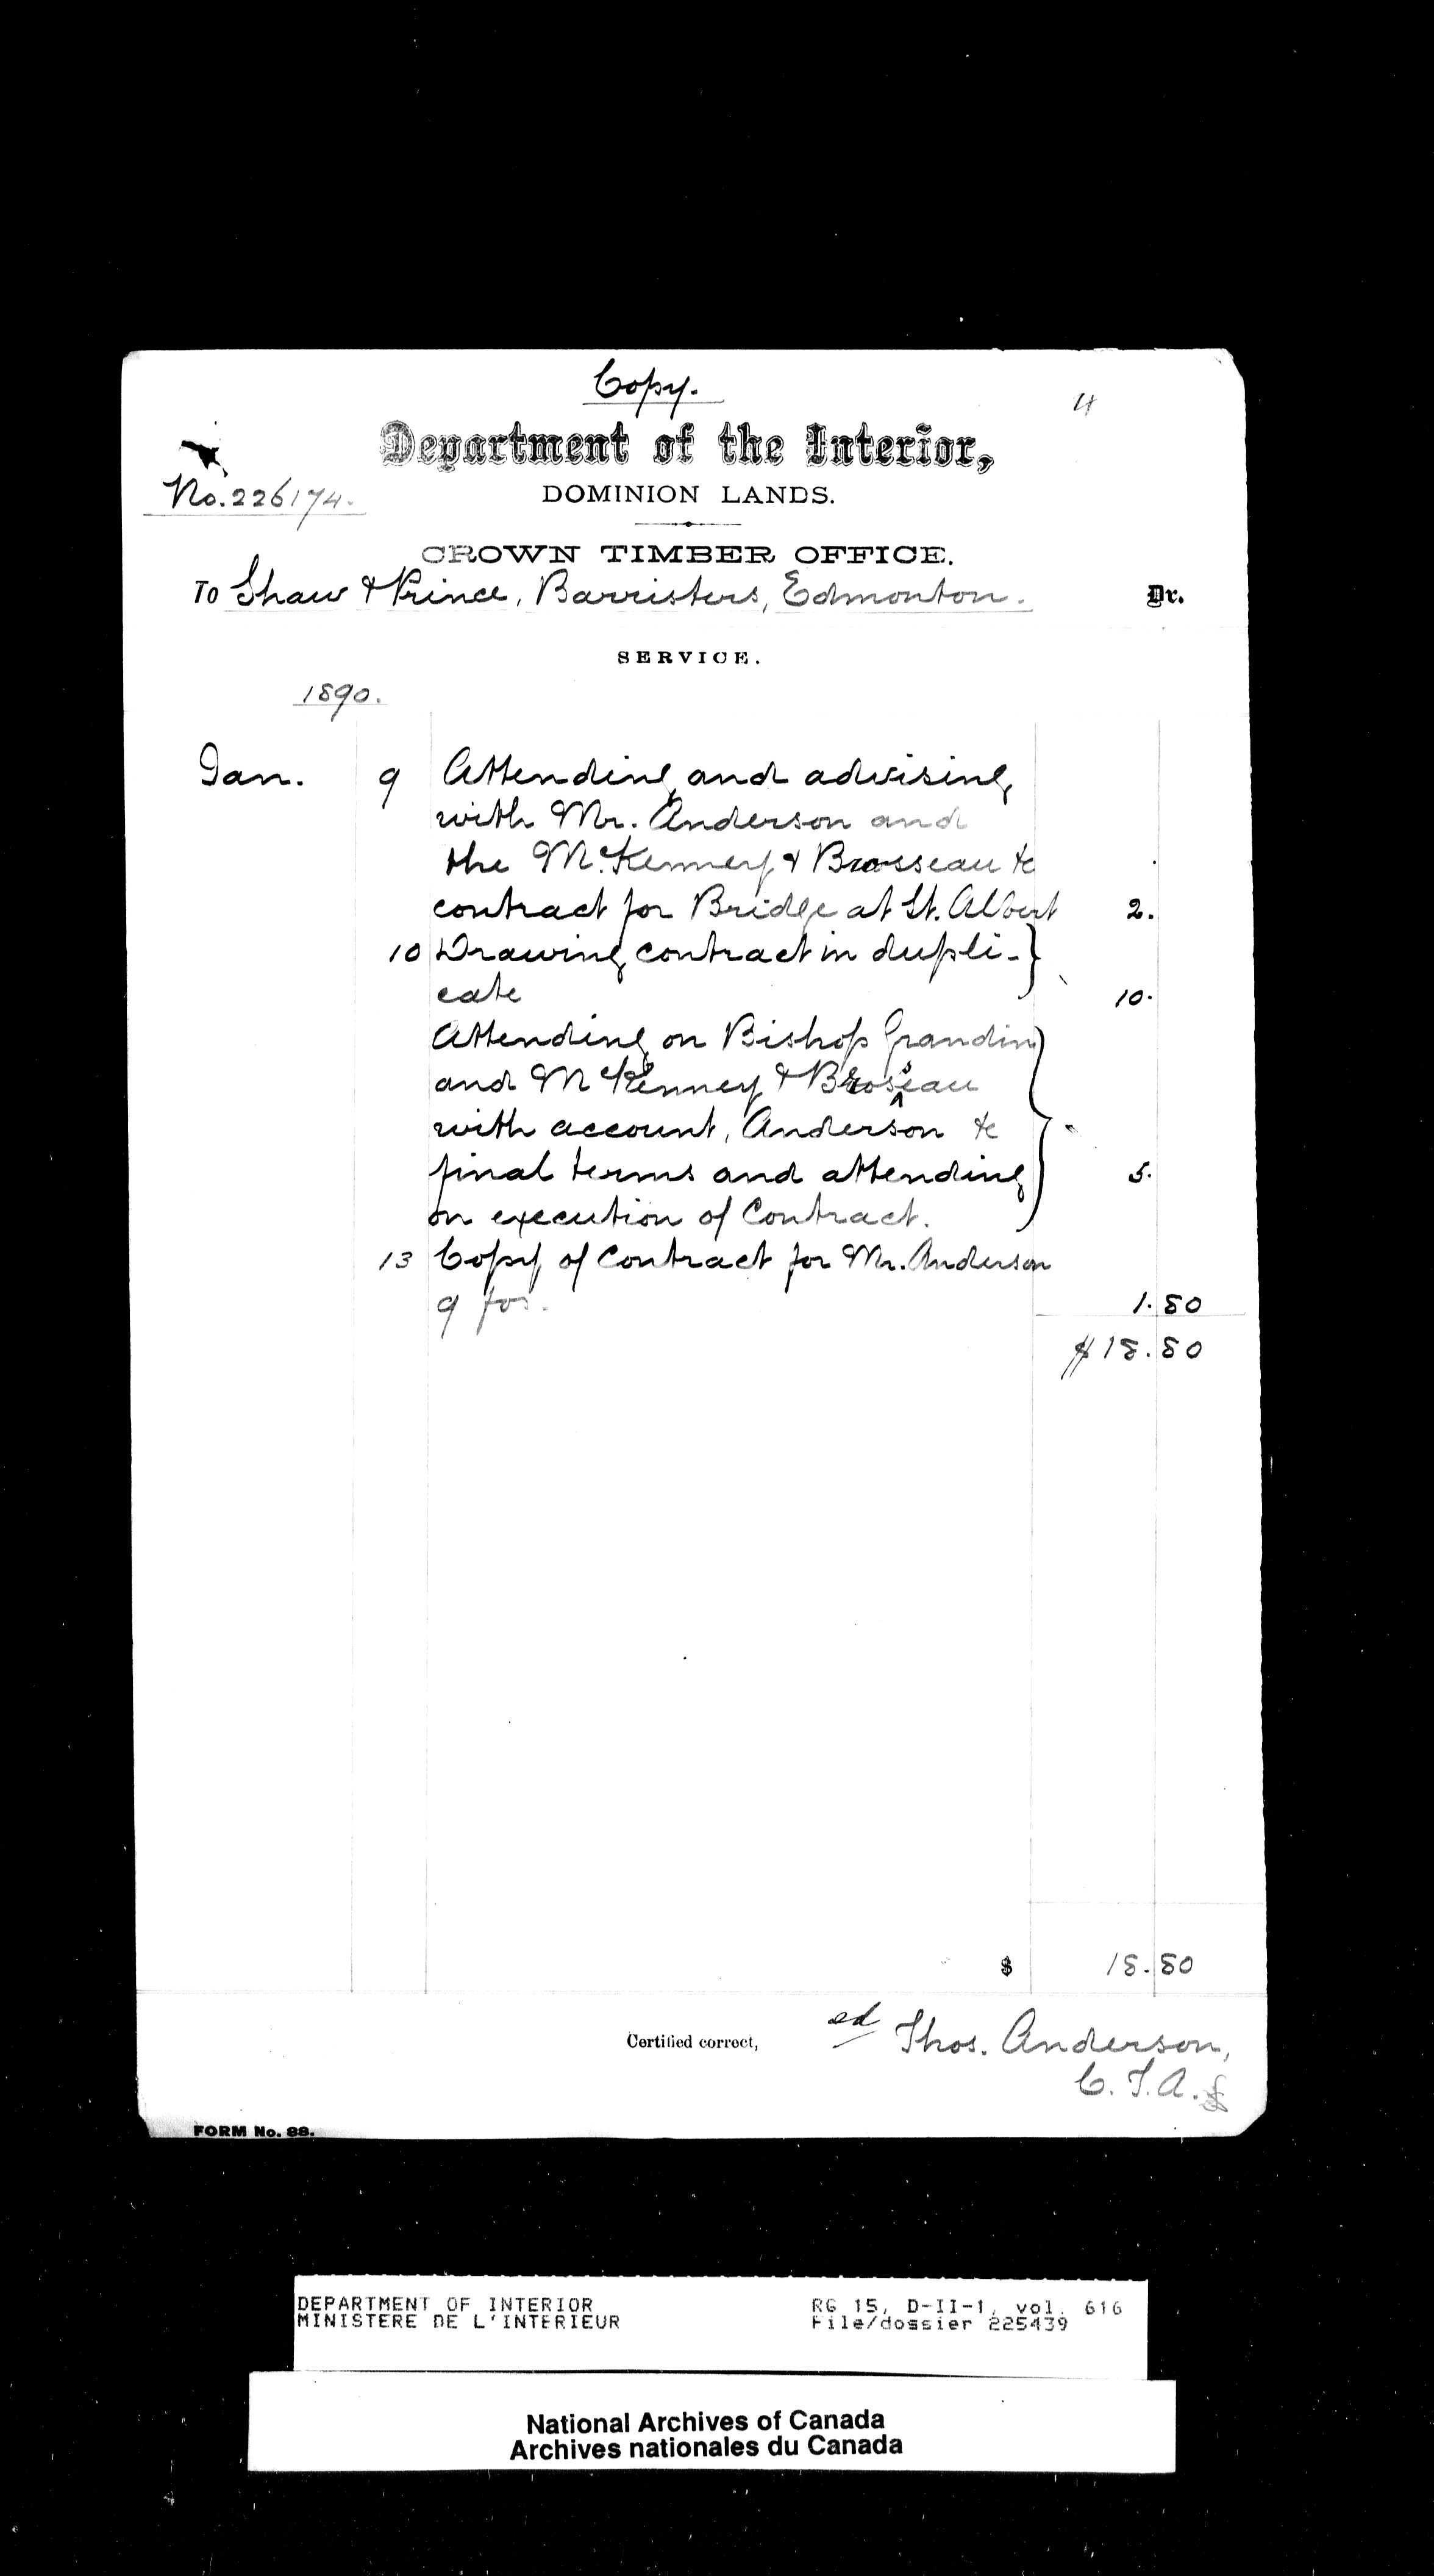 Copy.
4
Department of the Interior,
No. 226174.
DOMINION LANDS.
CROWN TIMBER OFFICE.
To Shaw & Prince, Barristers, Edmonton. Dr.
SERVICE.
1890.
Jan. 9 Attending and advising
with Mr. Anderson and
the McKenney & Brosseau &c
contract for Bridge at St. Albert 2.
10 Drawing contract in dupli-
cate 10.
Attending on Bishop Grandin
and McKenney & Brosseau
with account, Anderson &c
final terms and attending 5.
on execution of Contract.
13 Copy of Contract for Mr. Anderson
9 fos. 1.80
$18.80
$ 18.80
Certified correct, sd Thos. Anderson,
C.T.A.
FORM No. 88.
DEPARTMENT OF INTERIOR RG 15, D-II-1, vol. 616
MINISTERE DE L'INTERIEUR File/dossier 225439
National Archives of Canada
Archives nationales du Canada